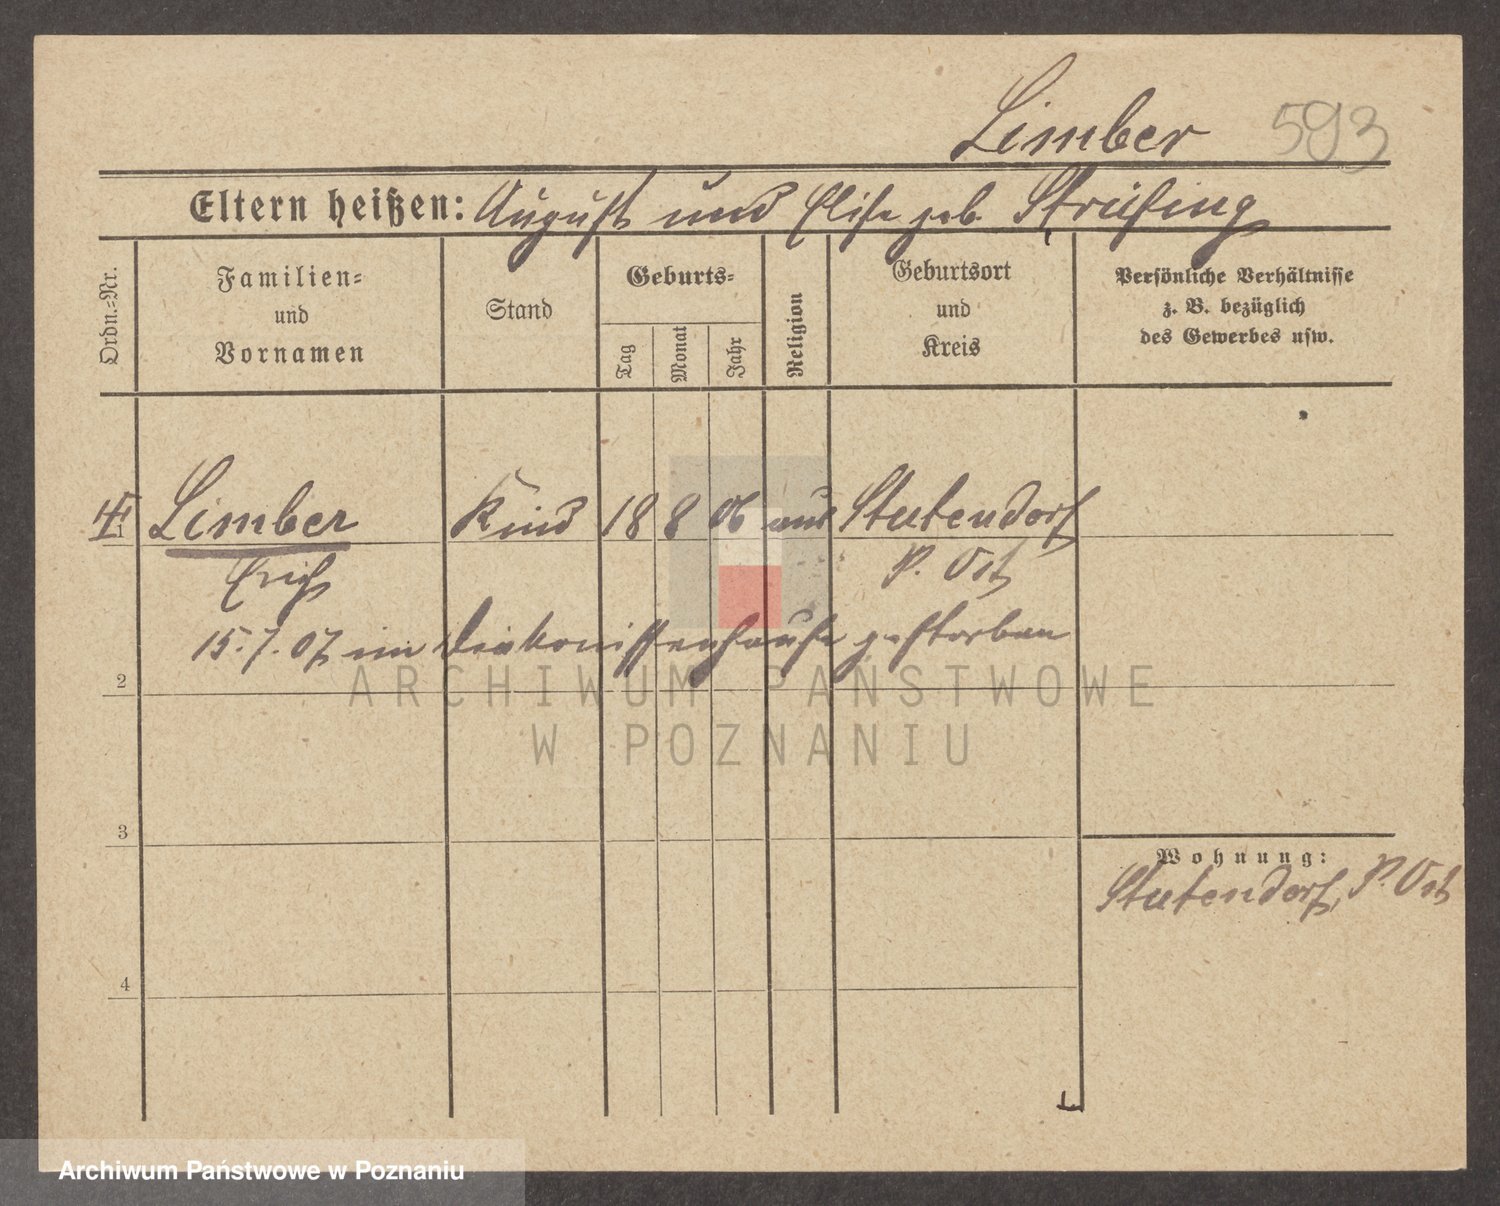 Limber 593
Eltern heißen: August und Elise geb. Strüfing
Ordn.-Nr.
Familien-
und
Vornamen
Stand
Geburts-
Tag
Monat
Jahr
Religion
Geburtsort
und
Kreis
Persönliche Verhältnisse
z. B. bezüglich
des Gewerbes usw.
1 Limber Kind 18 8 06 aus Stutendorf
Erich P. Ost
15.7.07 im Diakonissenhause gestorben
2
ARCHIWUM PAŃSTWOWE
W POZNANIU
3
Wohnung:
Stutendorf, P. Ost
4
Archiwum Państwowe w Poznaniu